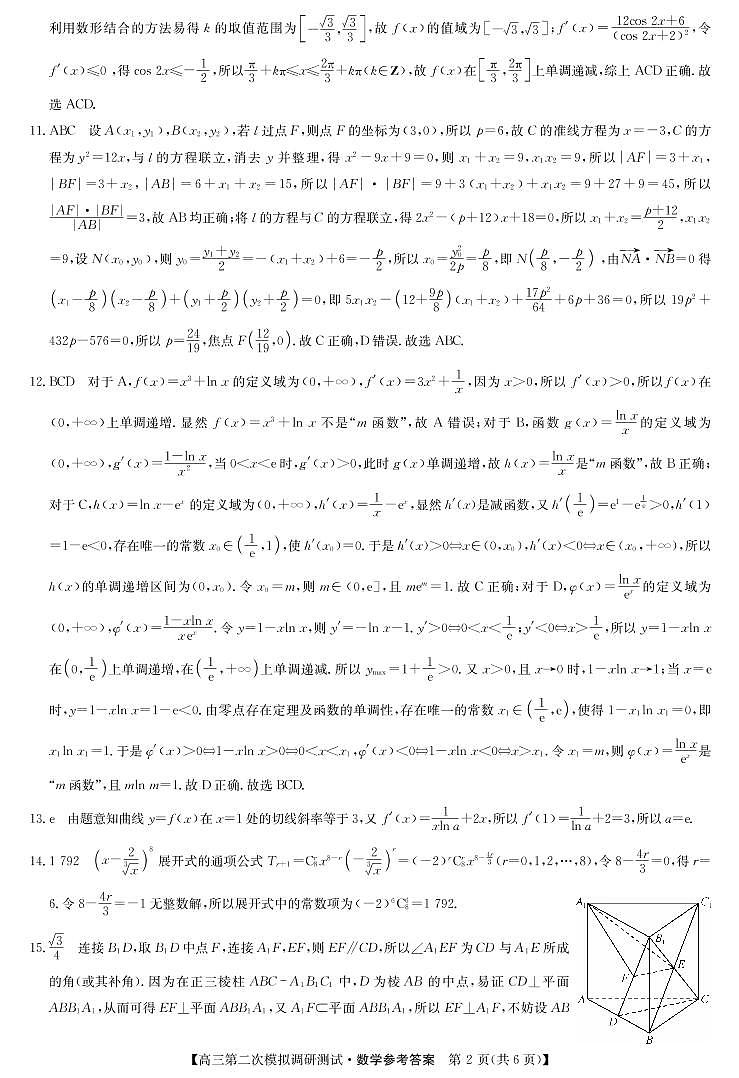 利用数形结合的方法易得 k 的取值范围为[-√3/3, √3/3],故 f(x)的值域为[-√3,√3];f′(x)=(12cos 2x+6)/(cos 2x+2)²,令
f′(x)≤0,得 cos 2x≤-1/2,所以π/3+kπ≤x≤2π/3+kπ(k∈Z),故 f(x)在[π/3, 2π/3]上单调递减,综上 ACD 正确.故
选 ACD.
11. ABC 设 A(x₁,y₁),B(x₂,y₂),若 l 过点 F,则点 F 的坐标为(3,0),所以 p=6,故 C 的准线方程为 x=-3,C 的方
程为 y²=12x,与 l 的方程联立,消去 y 并整理,得 x²-9x+9=0,则 x₁+x₂=9,x₁x₂=9,所以|AF|=3+x₁,
|BF|=3+x₂,|AB|=6+x₁+x₂=15,所以|AF|·|BF|=9+3(x₁+x₂)+x₁x₂=9+27+9=45,所以
|AF|·|BF|/|AB|=3,故 AB 均正确;将 l 的方程与 C 的方程联立,得 2x²-(p+12)x+18=0,所以 x₁+x₂=(p+12)/2,x₁x₂
=9,设 N(x₀,y₀),则 y₀=(y₁+y₂)/2=-(x₁+x₂)+6=-p/2,所以 x₀=y₀²/2p=p/8,即 N(p/8,-p/2),由NA→·NB→=0 得
(x₁-p/8)(x₂-p/8)+(y₁+p/2)(y₂+p/2)=0,即 5x₁x₂-(12+9p/8)(x₁+x₂)+17p²/64+6p+36=0,所以 19p²+
432p-576=0,所以 p=24/19,焦点 F(12/19,0).故 C 正确,D 错误.故选 ABC.
12. BCD 对于 A,f(x)=x³+ln x 的定义域为(0,+∞),f′(x)=3x²+1/x,因为 x>0,所以 f′(x)>0,所以 f(x)在
(0,+∞)上单调递增.显然 f(x)=x³+ln x 不是“m 函数”,故 A 错误;对于 B,函数 g(x)=ln x/x的定义域为
(0,+∞),g′(x)=(1-ln x)/x²,当 0<x<e 时,g′(x)>0,此时 g(x)单调递增,故 h(x)=ln x/x是“m 函数”,故 B 正确;
对于 C,h(x)=ln x-eˣ 的定义域为(0,+∞),h′(x)=1/x-eˣ,显然 h′(x)是减函数,又 h′(1/e)=e¹-e^(1/e)>0,h′(1)
=1-e<0,存在唯一的常数 x₀∈(1/e,1),使 h′(x₀)=0.于是 h′(x)>0⇔x∈(0,x₀),h′(x)<0⇔x∈(x₀,+∞),所以
h(x)的单调递增区间为(0,x₀).令 x₀=m,则 m∈(0,e],且 meᵐ=1.故 C 正确;对于 D,φ(x)=ln x/eˣ的定义域为
(0,+∞),φ′(x)=(1-xln x)/xeˣ.令 y=1-xln x,则 y′=-ln x-1. y′>0⇔0<x<1/e;y′<0⇔x>1/e,所以 y=1-xln x
在(0,1/e)上单调递增,在(1/e,+∞)上单调递减.所以 yₘₐₓ=1+1/e>0.又 x>0,且 x→0 时,1-xln x→1;当 x=e
时,y=1-xln x=1-e<0.由零点存在定理及函数的单调性,存在唯一的常数 x₁∈(1/e,e),使得 1-x₁ln x₁=0,即
x₁ln x₁=1.于是 φ′(x)>0⇔1-xln x>0⇔0<x<x₁,φ′(x)<0⇔1-xln x<0⇔x>x₁.令 x₁=m,则 φ(x)=ln x/eˣ是
“m 函数”,且 mln m=1.故 D 正确.故选 BCD.
13. e 由题意知曲线 y=f(x)在 x=1 处的切线斜率等于 3,又 f′(x)=1/(xln a)+2x,所以 f′(1)=1/ln a+2=3,所以 a=e.
14. 1 792 (x-2/∛x)⁸ 展开式的通项公式 Tᵣ₊₁=C₈ʳx⁸⁻ʳ(-2/∛x)ʳ=(-2)ʳC₈ʳx^(8-4r/3)(r=0,1,2,…,8),令 8-4r/3=0,得 r=
6.令 8-4r/3=-1 无整数解,所以展开式中的常数项为(-2)⁶C₈⁶=1 792.
15. √3/4 连接 B₁D,取 B₁D 中点 F,连接 A₁F,EF,则 EF∥CD,所以∠A₁EF 为 CD 与 A₁E 所成
的角(或其补角).因为在正三棱柱 ABC-A₁B₁C₁ 中,D 为棱 AB 的中点,易证 CD⊥平面
ABB₁A₁,从而可得 EF⊥平面 ABB₁A₁,又 A₁F⊂平面 ABB₁A₁,所以 EF⊥A₁F,不妨设 AB
A₁
C₁
B₁
E
F
A
C
D
B
【高三第二次模拟调研测试·数学参考答案 第 2 页(共 6 页)】